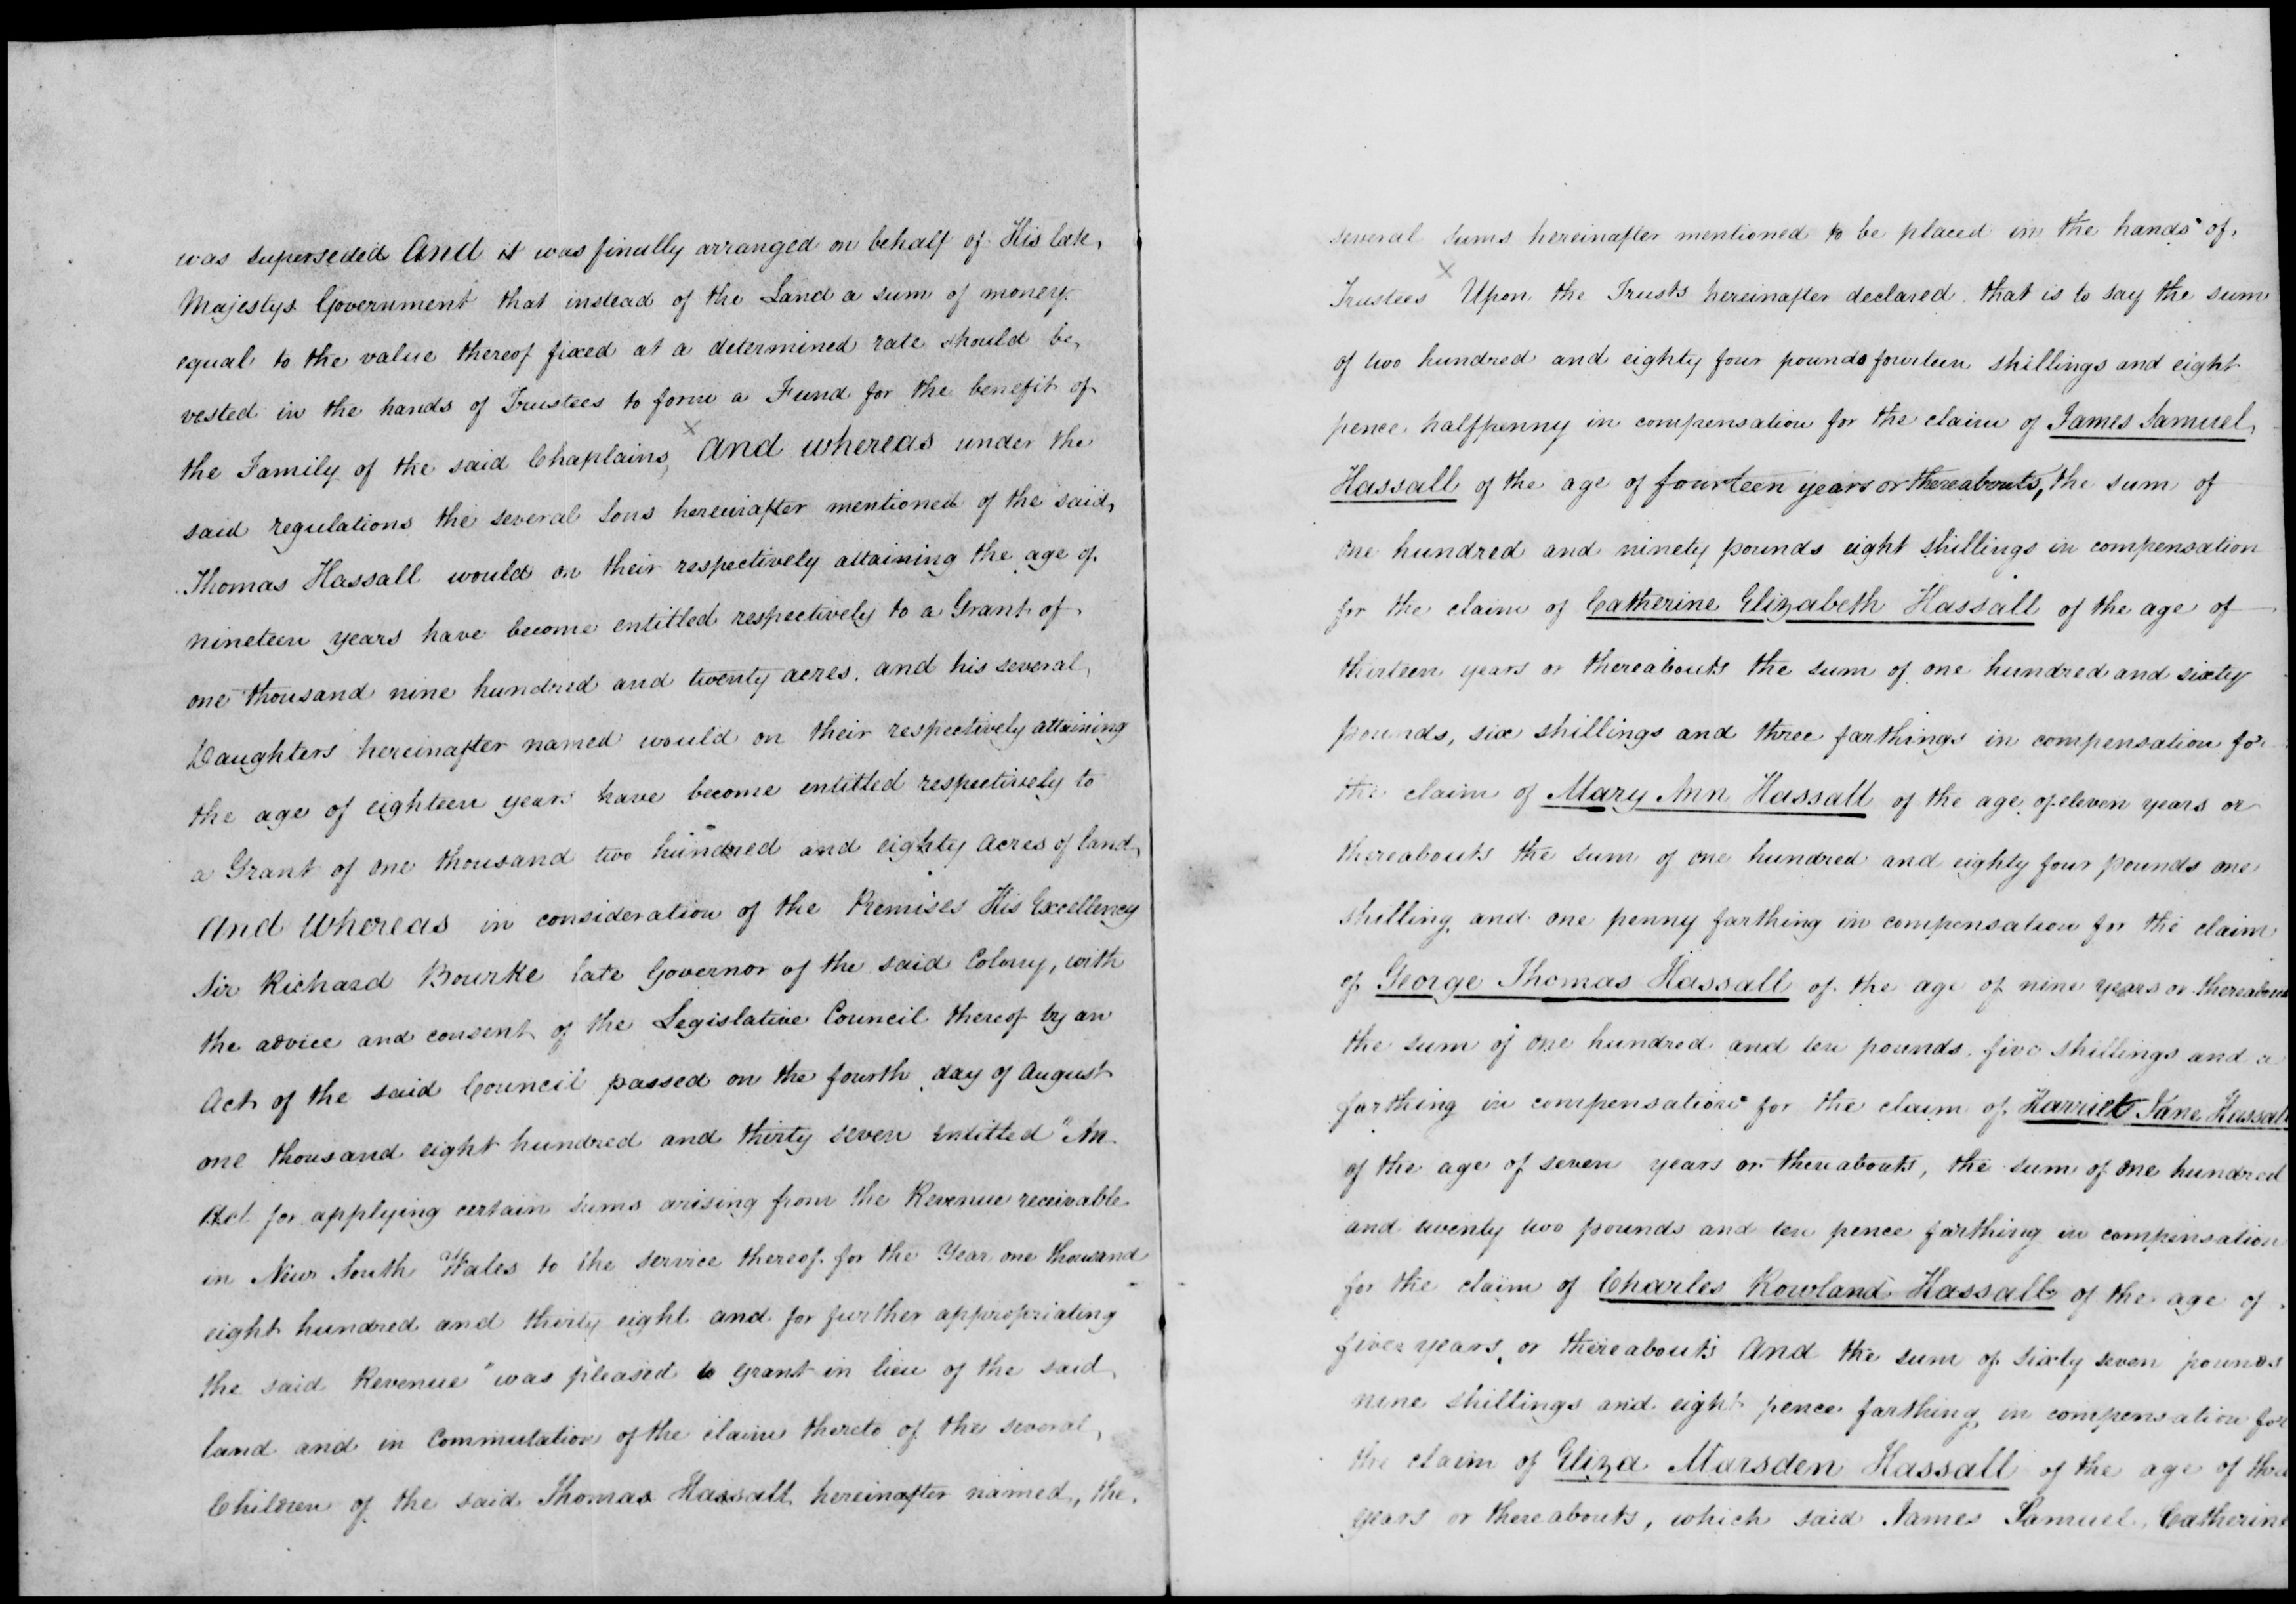 was superseded And it was finally arranged on behalf of His late
Majestys Government that instead of the Land a sum of money
equal to the value thereof fixed at a determined rate should be
vested in the hands of Trustees to form a Fund for the benefit of
the Family of the said Chaplains, × And whereas under the
said regulations the several Sons hereinafter mentioned of the said
Thomas Hassall would on their respectively attaining the age of
nineteen years have become entitled respectively to a Grant of
one thousand nine hundred and twenty acres. and his several
Daughters hereinafter named would on their respectively attaining
the age of eighteen years have become entitled respectively to
a Grant of one thousand two hundred and eighty acres of land
And Whereas in consideration of the Premises His Excellency
Sir Richard Bourke late Governor of the said Colony, with
the advice and consent of the Legislative Council thereof by an
Act of the said Council passed on the fourth day of August
one thousand eight hundred and thirty seven entitled "An
Act for applying certain sums arising from the Revenue receivable
in New South Wales to the service thereof for the Year one thousand
eight hundred and thirty eight and for further appropriating
the said Revenue" was pleased to grant in lieu of the said
land and in Commutation of the claim thereto of the several
Children of the said Thomas Hassall hereinafter named, the
several sums hereinafter mentioned to be placed in the hands of
Trustees × Upon the Trusts hereinafter declared that is to say the sum
of two hundred and eighty four pounds fourteen shillings and eight
pence halfpenny in compensation for the claim of James Samuel
Hassall of the age of fourteen years or thereabouts, the sum of
one hundred and ninety pounds eight shillings in compensation
for the claim of Catherine Elizabeth Hassall of the age of
thirteen years or thereabouts the sum of one hundred and sixty
pounds, six shillings and three farthings in compensation for
the claim of Mary Ann Hassall of the age of eleven years or
thereabouts the sum of one hundred and eighty four pounds one
shilling and one penny farthing in compensation for the claim
of George Thomas Hassall of the age of nine years or thereabouts
the sum of one hundred and ten pounds five shillings and a
farthing in compensation for the claim of Harriet Jane Hassall
of the age of seven years or thereabouts, the sum of one hundred
and twenty two pounds and ten pence farthing in compensation
for the claim of Charles Rowland Hassall of the age of
five years, or thereabouts And the sum of sixty seven pounds
nine shillings and eight pence farthing in compensation for
the claim of Eliza Marsden Hassall of the age of three
years or thereabouts, which said James Samuel, Catherine